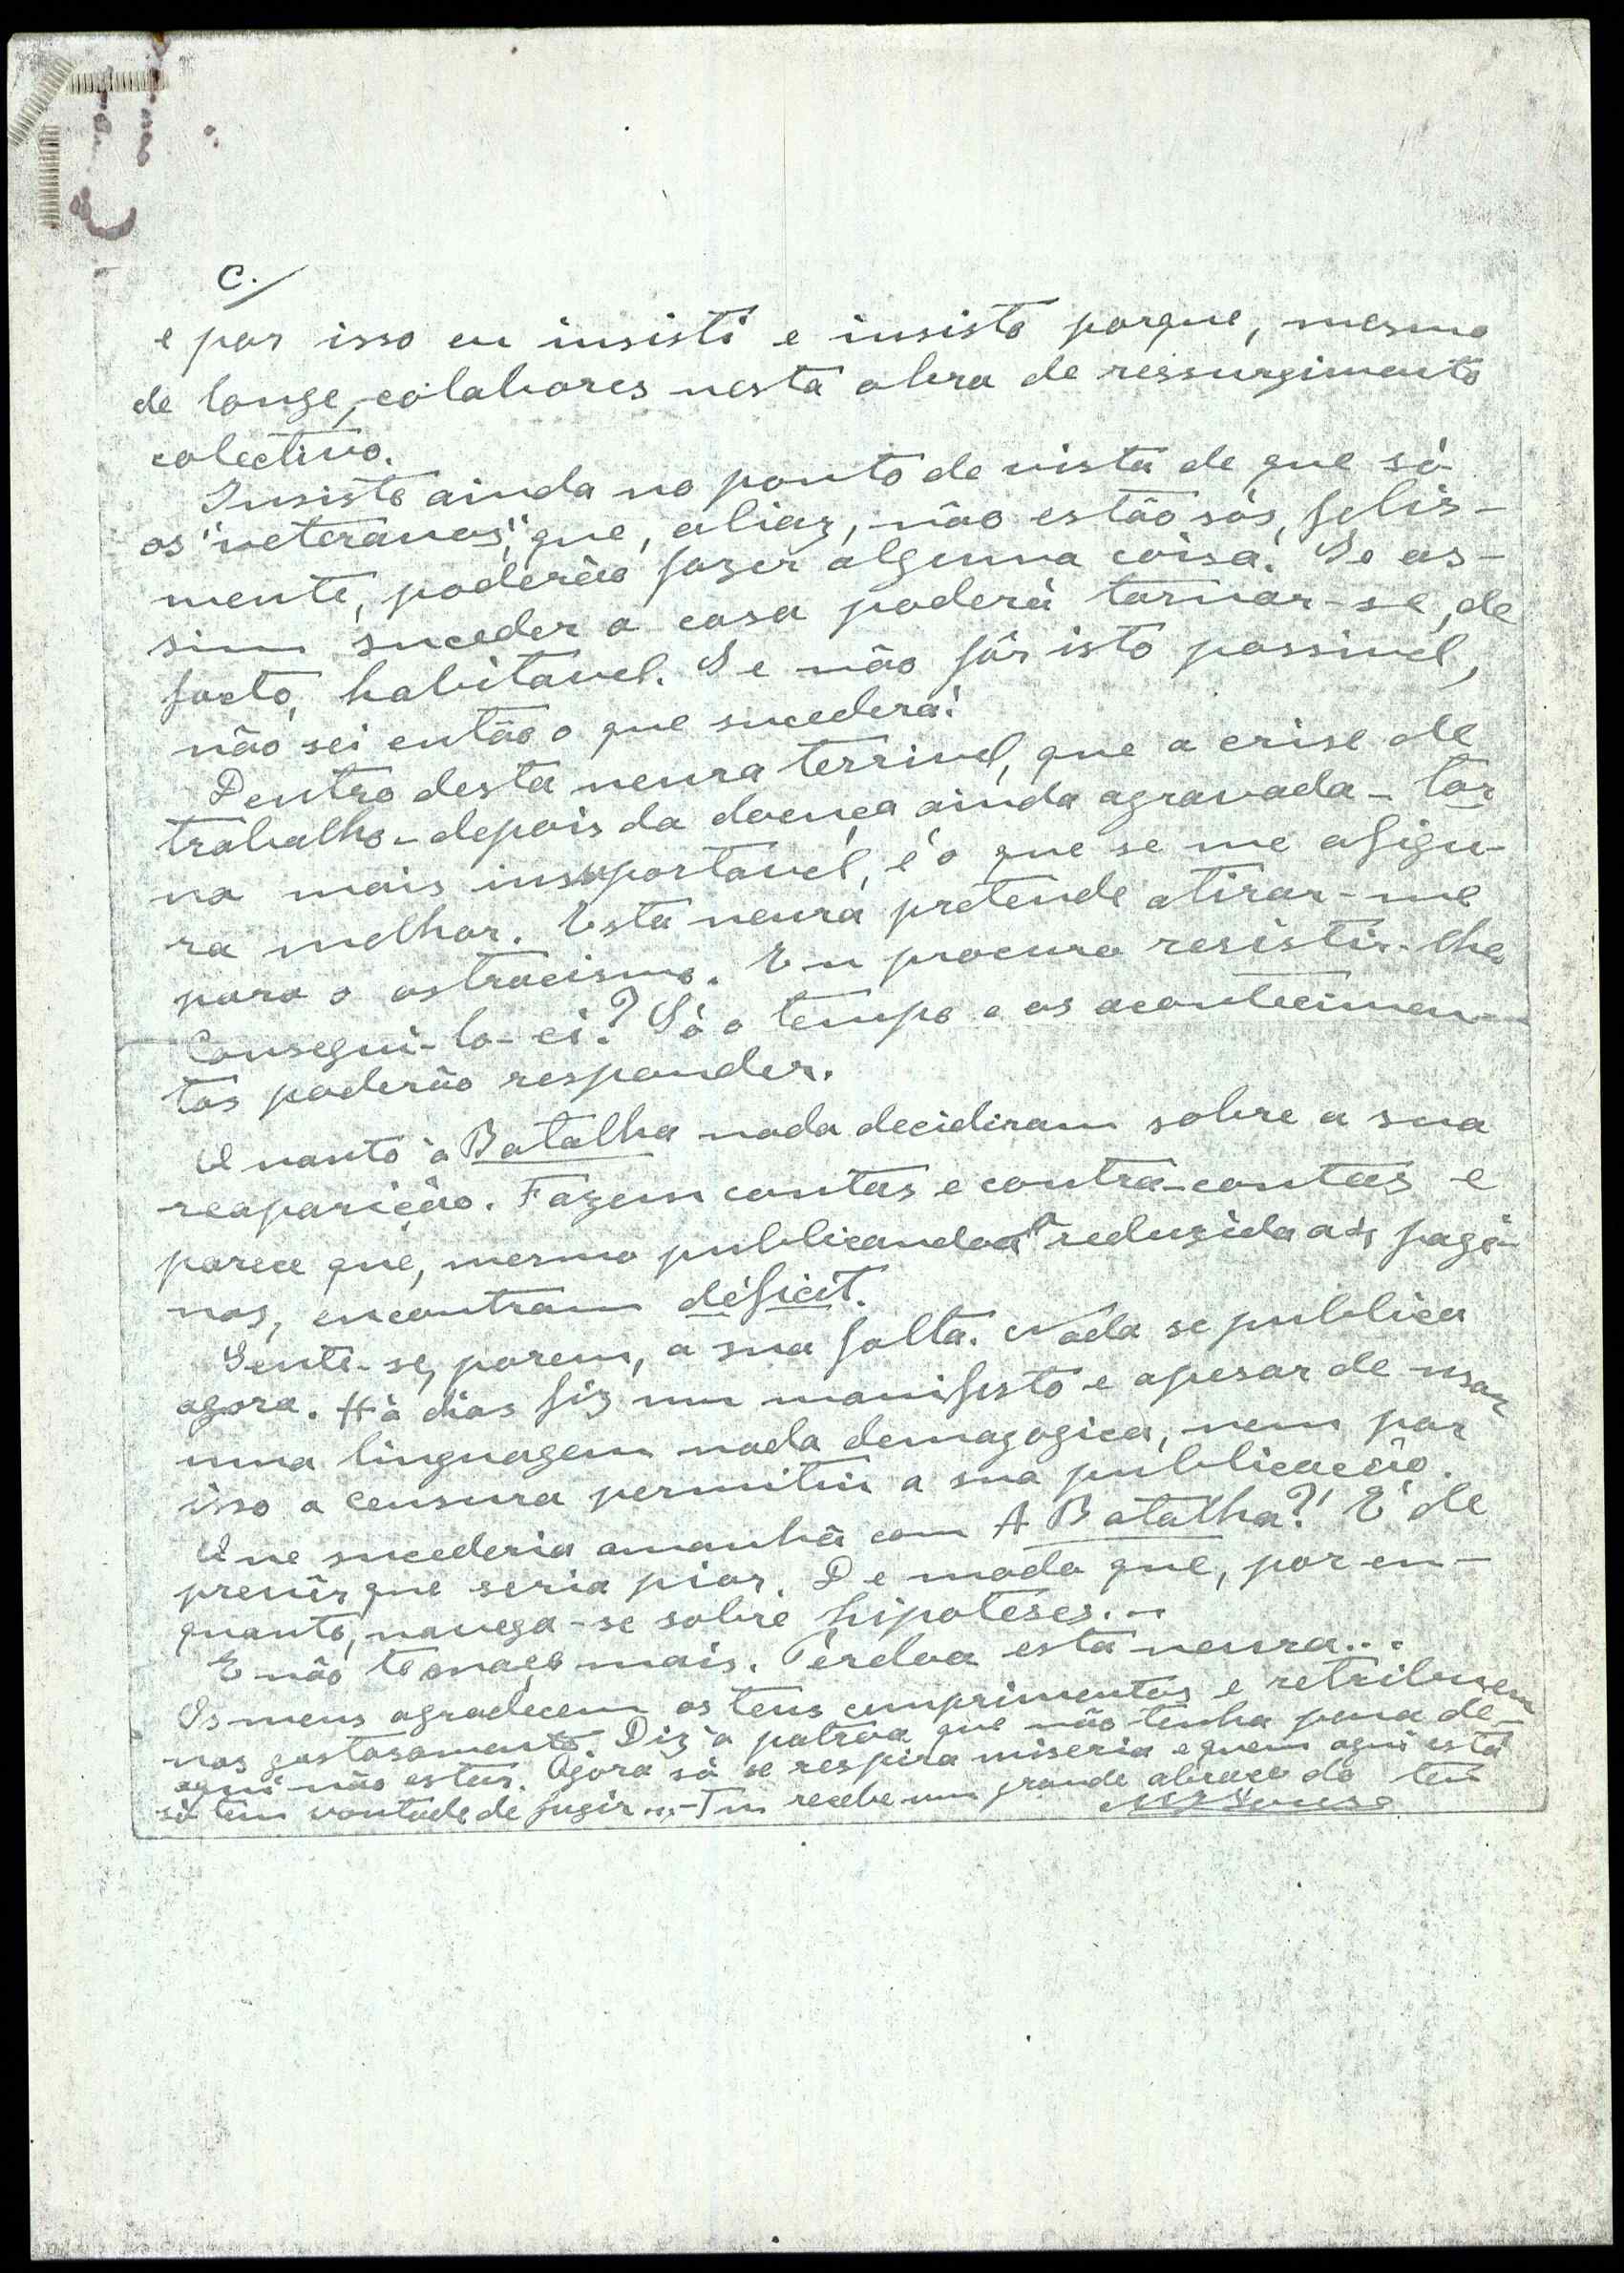 C./
e por isso eu insisti e insisto porque, mesmo
de longe, colabores nesta obra de ressurgimento
colectivo.
Insisto ainda no ponto de vista de que só
os "veteranos", que, aliaz, não estão sós, feliz-
mente, poderão fazer alguma coisa. Se as-
sim suceder a casa poderá tornar-se, de
facto, habitavel. Se não fôr isto possivel,
não sei então o que sucederá!
Dentro desta neura terrivel, que a crise de
trabalho - depois da doença ainda agravada - tor
na mais insuportavel, é o que se me afigu-
ra melhor. Esta neura pretende atirar-me
para o ostracismo. Eu procuro resistir-lhe
Consegui-lo-ei? Só o tempo e os acontecimen-
tos poderão responder.
Quanto á Batalha nada decidiram sobre a sua
reaparição. Fazem contas e contra-contas e
parece que, mesmo publicando-a reduzida a 4 pagi-
nas, encontram déficit.
Sente-se, porem, a sua falta. Nada se publica
agora. Há dias fiz um manifesto e apesar de usar
uma linguagem nada demagogica, nem por
isso a censura permitiu a sua publicação.
Que sucederia amanhã com A Batalha?! É de
prevêr que seria pior. De modo que, por en-
quanto, navega-se sobre hipoteses...
E não te maço mais. Perdoa esta neura...
Os meus agradecem os teus cumprimentos e retribuem
nos gostosamente. Diz á patroa que não tenha pena de
aqui não estar. Agora só se respira miseria e quem aqui está
só tem vontade de fugir... - Tu recebe um grande abraço do teu
Sousa